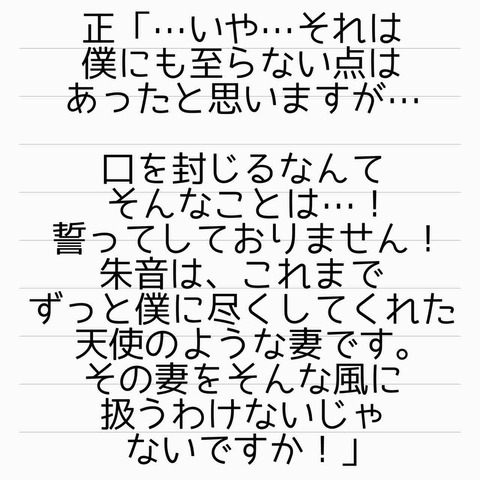 正「…いや…それは
僕にも至らない点は
あったと思いますが…
口を封じるなんて
そんなことは…！
誓ってしておりません！
朱音は、これまで
ずっと僕に尽くしてくれた
天使のような妻です。
その妻をそんな風に
扱うわけないじゃ
ないですか！」